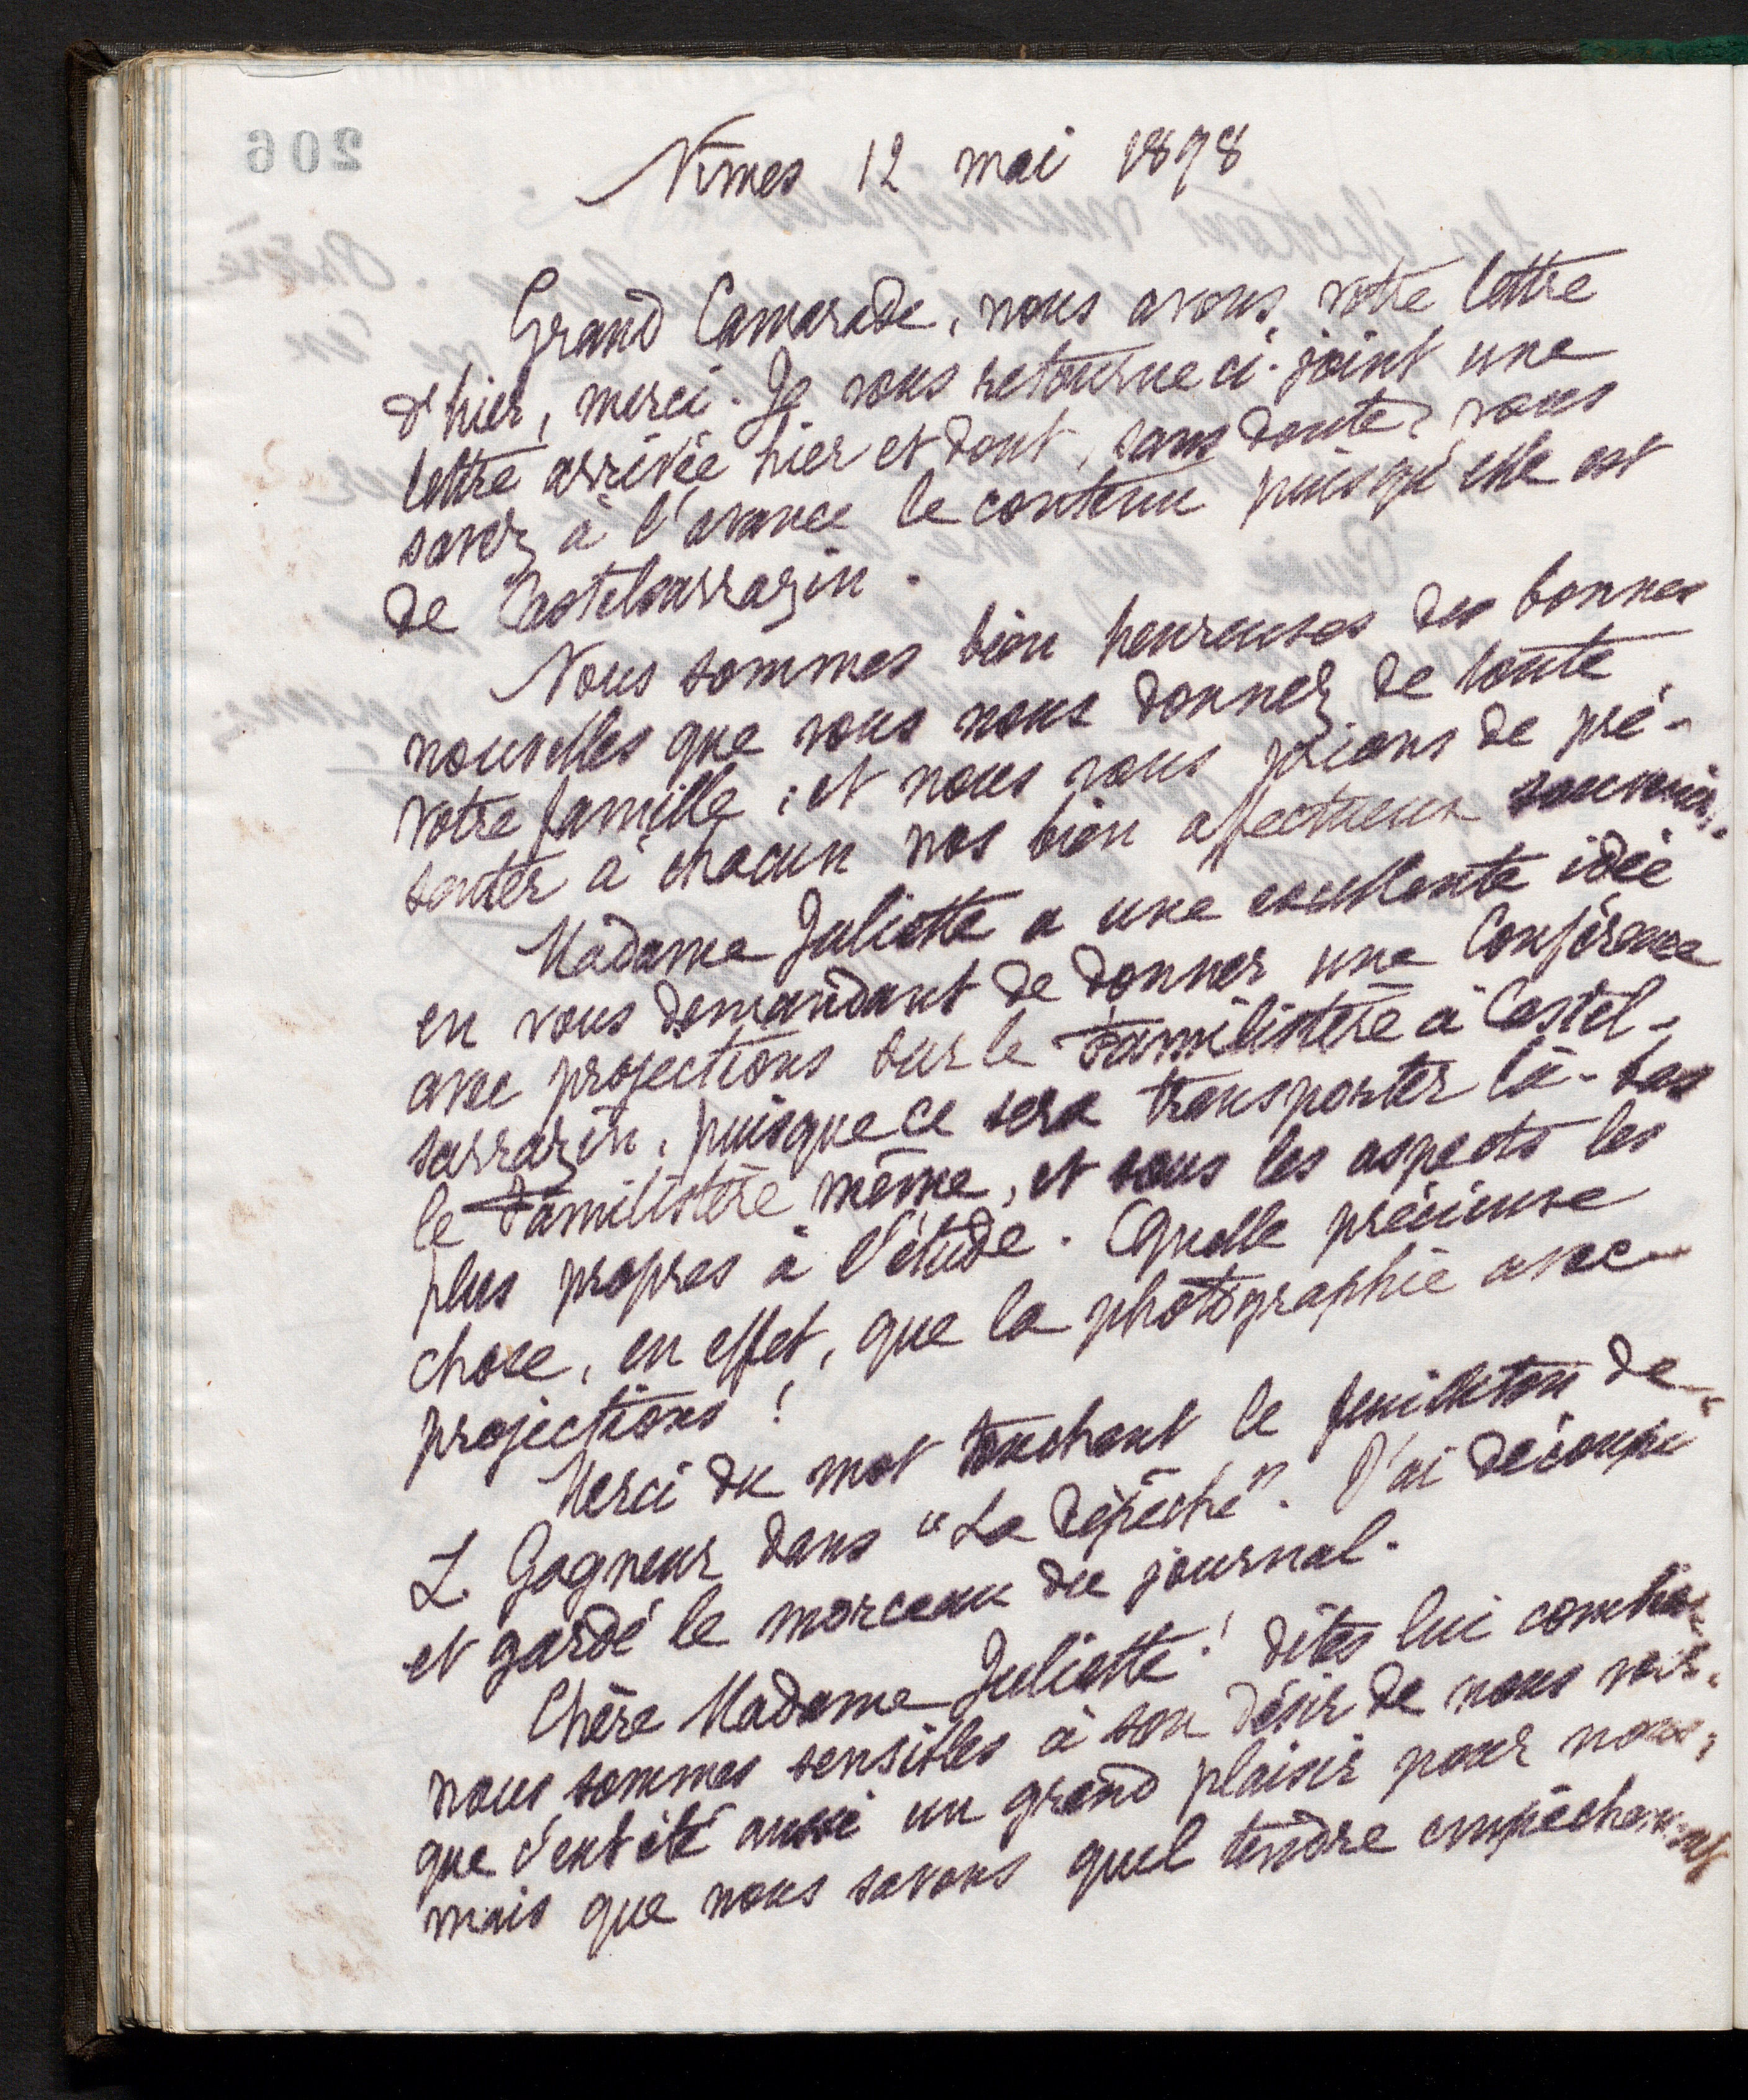 206
Nîmes 12 mai 1898
Grand Camarade, nous avons votre lettre
d'hier, merci. Je vous retourne ci-joint une
lettre arrivée hier et dont, sans doute, vous
savez à l'avance le contenu puisqu'elle est
de Castelsarrazin.
Nous sommes bien heureuses des bonnes
nouvelles que vous nous donnez de toute
votre famille ; et nous vous prions de pré-
senter à chacun nos bien affectueux souvenirs.
Madame Juliette a une excellente idée
en vous demandant de donner une Conférence
avec projections sur le Familistère à Castel-
sarrazin, puisque ce sera transporter là-bas
le Familistère même, et sous les aspects les
plus propres à l'étude. Quelle précieuse
chose, en effet, que la photographie avec
projections !
Merci du mot touchant le feuilleton de
L. Gagneur dans "La Dépêche". J'ai découpé
et gardé le morceau du journal.
Chère Madame Juliette ! dites lui combien
nous sommes sensibles à son désir de nous voir,
que c'eut été aussi un grand plaisir pour nous,
mais que nous savons quel tendre empêchement